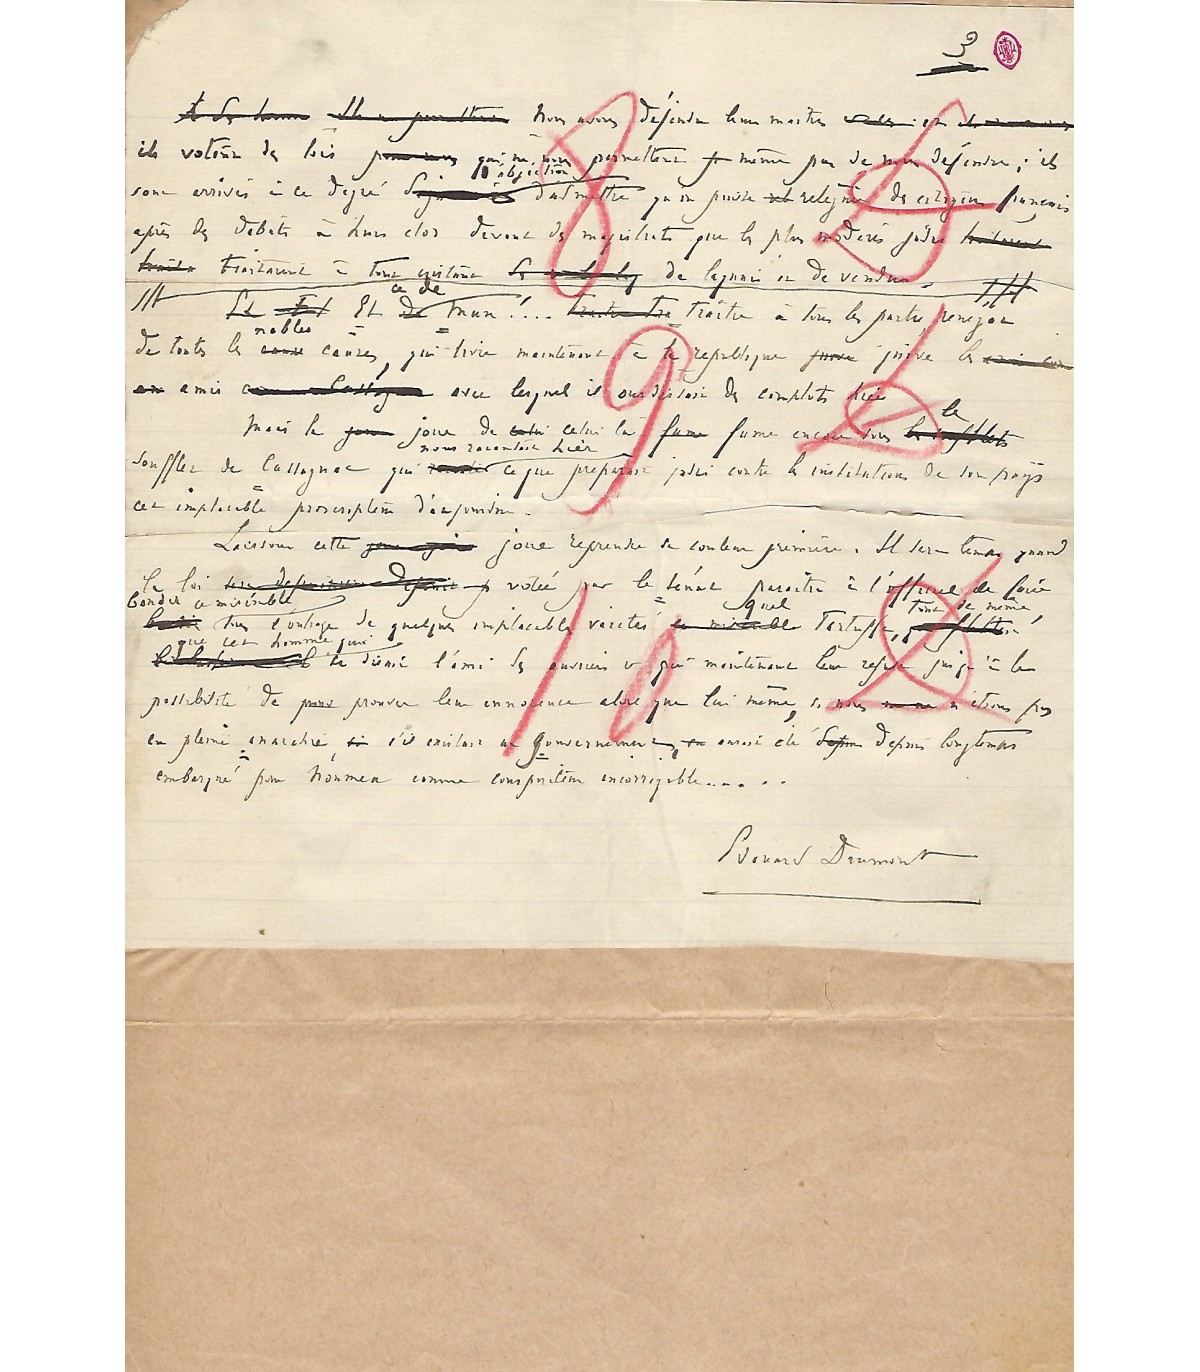 3
nous avons défendu leurs maîtres et
ils votent des lois qui ne nous permettent même pas de nous défendre ; ils
l'abjection
sont arrivés à ce degré d'admettre qu'on puisse reléguer des citoyens français
après des débats à huis clos devant des magistrats que les plus modérés jadis
traitaient à tout instant de laquais et de vendus.
8
ce de
Et Mun !.... traître à tous les partis, renégat
nobles
de toutes les causes, qui livre maintenant à la république juive les
amis avec lesquels il ourdissait des complots
9
le
Mais la joue de celui là fume encore sous
nous racontait hier
soufflet de Cassagnac qui ce que préparait jadis contre les institutions de son pays
cet implacable proscripteur d'aujourd'hui.
Laissons cette joue reprendre sa couleur première. Il sera temps quand
la loi votée par le Sénat paraîtra à l'officiel de faire
bondir ce misérable
sous l'outrage de quelques implacables vérités
quel
Tartuffe,
tout de même
que cet homme qui
se disait l'ami des ouvriers et qui maintenant leur refuse jusqu'à la
possibilité de prouver leur innocence alors que lui même, si nous n'étions pas
en pleine anarchie s'il existait un gouvernement, aurait été depuis longtemps
embarqué pour Nouméa comme conspirateur incorrigible.....
10
Edouard Drumont